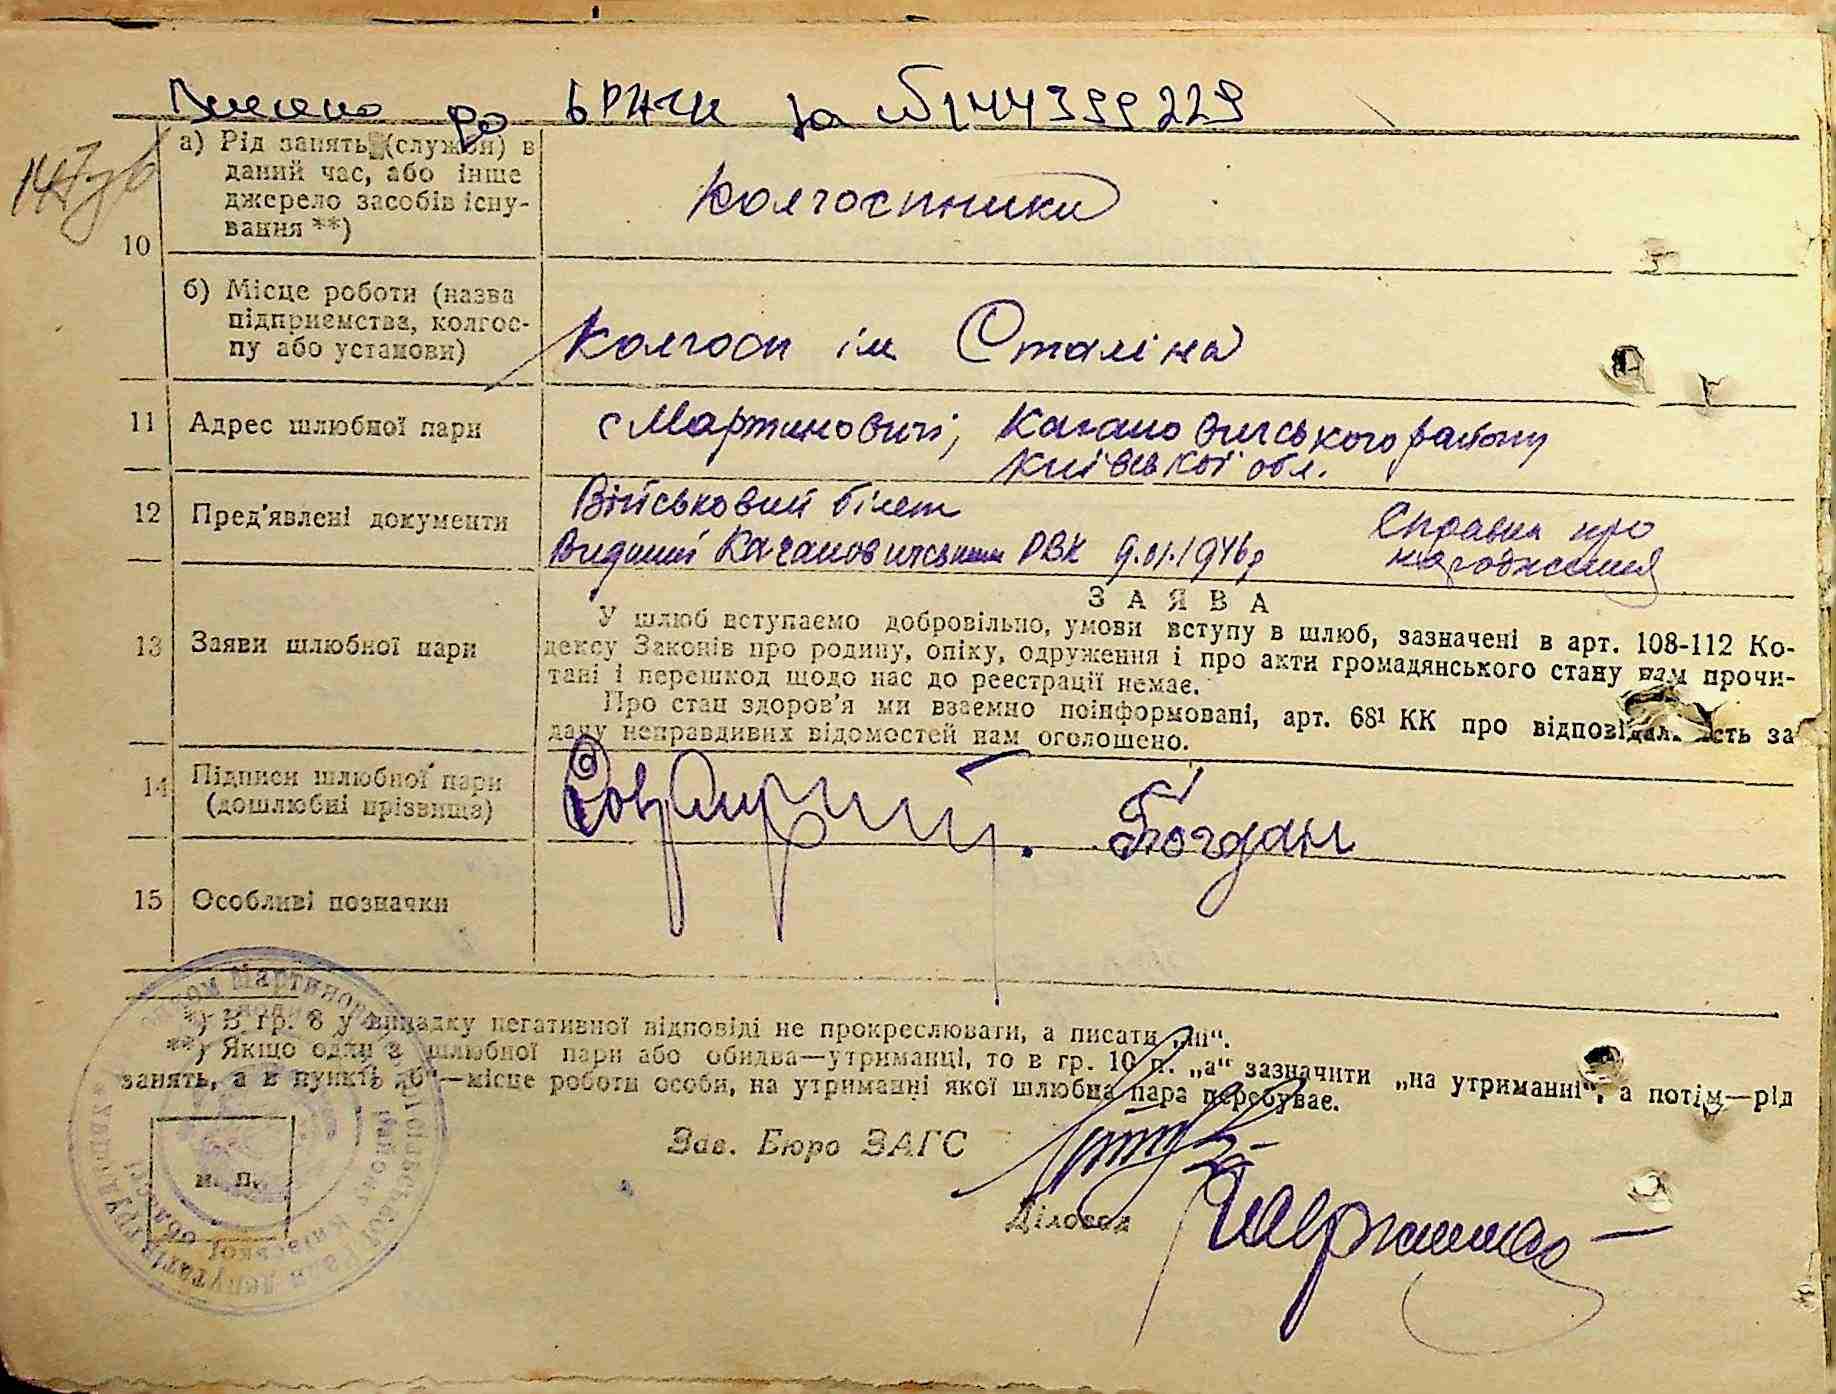 Внесено до ДРАЦС за №144399229
а) Рід занять (служби) в
даний час, або інше
джерело засобів існу-
вання **)
Колгоспники
10
б) Місце роботи (назва
підприємства, колгос-
пу або установи)
Колгосп ім Сталіна
11 Адрес шлюбної пари
с Мартиновичі, Кагановицського району
Київської обл.
12 Пред'явлені документи
Війсьховий білет
Виданий Кагановицським РВК 9.01.1946р
Справка про
народження
13 Заяви шлюбної пари
ЗАЯВА
У шлюб вступаємо добровільно, умови вступу в шлюб, зазначені в арт. 108-112 Ко-
дексу Законів про родину, опіку, одруження і про акти громадянського стану нам прочи-
тані і перешкод щодо нас до реєстрації немає.
Про стан здоров'я ми взаємно поінформовані, арт. 68¹ КК про відповідальність за
дачу неправдивих відомостей нам оголошено.
14 Підписи шлюбної пари
(дошлюбні прізвища)
Богдан
15 Особливі позначки
*) В гр. 8 у випадку негативної відповіді не прокреслювати, а писати „ні“.
**) Якщо один з шлюбної пари або обидва—утриманці, то в гр. 10 п. „а“ зазначити „на утриманні“, а потім—рід
занять, а в пункті „б“—місце роботи особи, на утриманні якої шлюбна пара перебуває.
Зав. Бюро ЗАГС
м. п.
Діловод